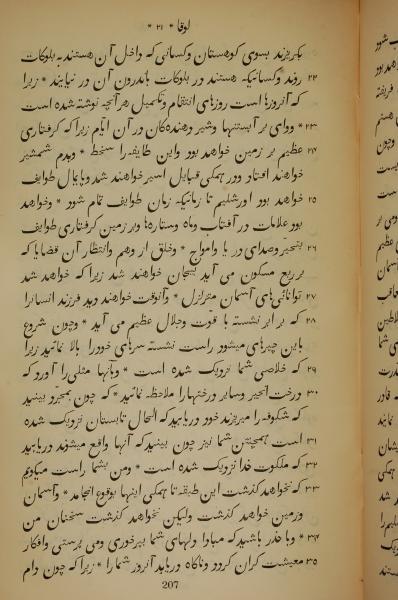 لوقا * ۲۱ *
بگریزند بسوی کوهستان وکسانی که داخل آن هستند به بلوکات
۲۲ روند وکسانیکه هستند در بلوکات باندرون آن در نیایند * زیرا
که آنروزها است روزهای انتقام وتکمیل هر آنچه نوشته شده است
۲۳ * ووای بر آبستنها وشیر دهنده‌کان در آن ایّام زیرا که گرفتاری
۲۴ عظیم بر زمین خواهد بود واین طایفه را سخط * وبدم شمشیر
خواهند افتاد ودر همگی قبایل اسیر خواهند شد وپایمال طوایف
۲۵ خواهد بود اورشلیم تا زمانیکه زمان طوایف تمام شود * وخواهد
بود علامات در آفتاب وماه وستاره‌ها وبر زمین گرفتاری طوایف
۲۶ بتحیّر وصدای دریا وامواج * وخلق از وهم وانتظار آن قضایا که
بر ربع مسکون می آید بیجان خواهند شد زیرا که خواهد شد
۲۷ توانائی‌های آسمان متزلزل * وآنوقت خواهند دید فرزند انسانرا
۲۸ که بر ابر نشسته با قوّت وجلال عظیم می آید * وچون شروع
باین چیزهای میشود راست نشسته سرهای خودرا بالا نمائید زیرا
۲۹ که خلاصی شما نزدیک شده است * وبآنها مثلی را آورد که
۳۰ درخت انجیر وسایر درختها را ملاحظه نمائید * که چون بمجرّد ببینید
که شکوفه را میریزند خود دریابید که الحال تابستان نزدیک شده
۳۱ است همچنین شما نیز چون ببینید که آنها واقع میشوند دریابید
۳۲ که ملکوت خدا نزدیک شده است * ومن بشما راست میگویم
۳۳ که نخواهد گذشت این طبقه تا همگی اینها بوقوع انجامد * وآسمان
وزمین خواهد گذشت ولیکن نخواهد گذشت سخنان من
۳۴ * وبا حذر باشید که مبادا دلهای شما بپرخوری ومی پرستی وافکار
۳۵ معیشت گران گردد وناگاه دریابد آنروز شمارا * زیرا که چون دام
207